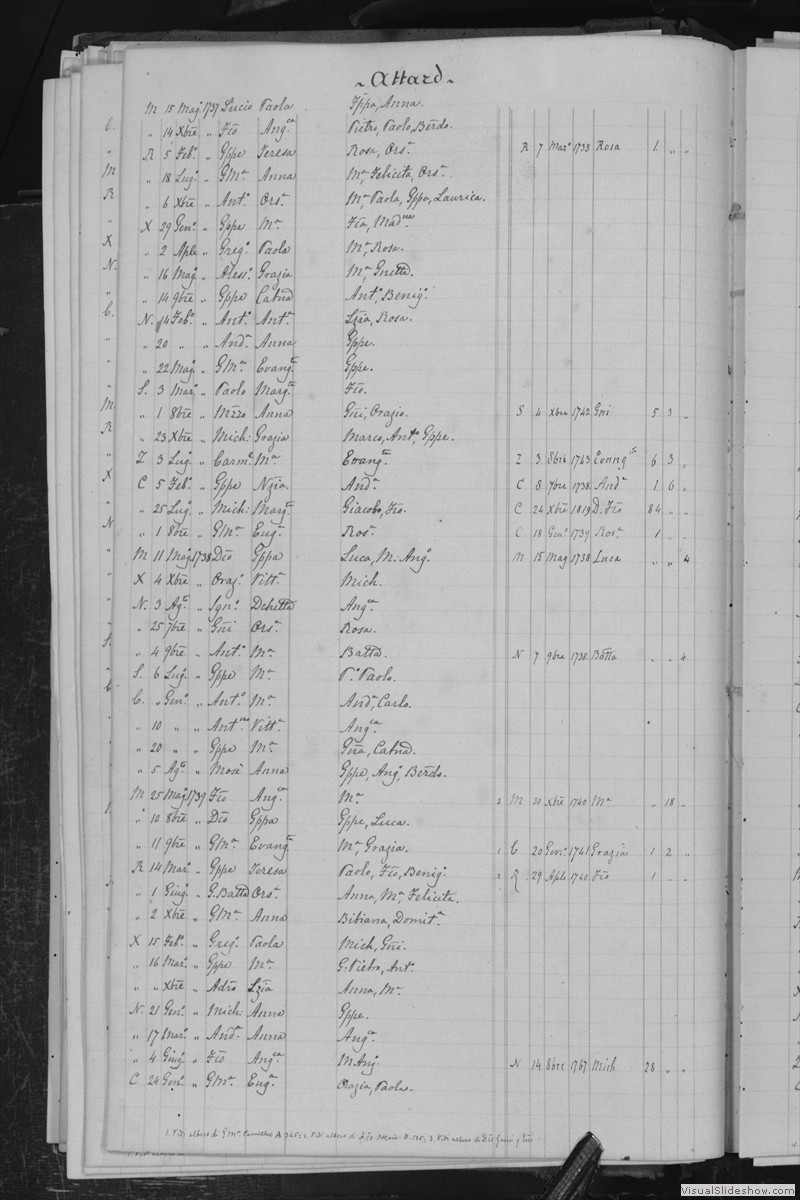 ~ Attard ~
M 15 Mag. 1737 Lucio Paola Gppa, Anna.
" 14 Xbre " Fco Ang.ca Pietro, Paolo, Berdo.
R 5 Feb.o " Gppe Teresa Rosa, Ors.a R 7 Mar.o 1738 Rosa 1 " "
" 18 Lug.o " GMa Anna Ma, Felicita, Ors.a
" 6 Xbre " Ant.o Ors.a Ma, Paola, Gppa, Laurica.
X 29 Gen.o " Gppe Ma
" 2 Aple " Greg.o Paola Ma, Rosa.
" 16 Mag. " Aless.o Grazia Ma
" 14 9bre " Gppe Catna Ant.o, Benig.o
N. 14 Feb.o " Ant.o Ant.a Lzia, Rosa.
" 20 " " And.a Anna Gppe.
" 22 Mag. " GMa Evang.ta Gppe.
S. 3 Mar.o " Paolo Marg.ta Fco.
" 1 8bre " Anna Gni, Orazio. S 4 Xbre 1742 Gni 5 3 "
" 23 Xbre " Mich: Grazia Marco, Ant.o, Gppe.
Z 3 Lug.o " Carm.o Ma Evang.ta Z 3 8bre 1743 Evang.ta 6 3 "
C 5 Feb.o " Gppe Nzia. And.a C 8 7bre 1738 And.a 1 6 "
" 25 Lug.o " Mich: Marg.ta Giacobo, Fco. C 24 Xbre 1819 D. Fco 84 " "
" 1 8bre " GMa Eug.a Ros.a C 18 Gen.o 1739 Ros.a 1 " "
M 11 Mag. 1738 Dco Gppa Luca, M: Ang.a M 15 Mag 1738 Luca " " 4
X 4 Xbre " Oraz.o Vitt.a Mich.
N. 3 Ag.to " Ign.o Ang.ca
" 25 7bre " Gni Ors.a Rosa.
" 4 9bre " Ant.o Ma Batta. N 7 9bre 1738 Batta " " 4
S. 6 Lug.o " Gppe Ma P. Paolo.
C. " Gen.o " Ant.o Ma And.a, Carlo.
" 10 " " Ant.no Vitt.a Ang.ca
" 20 " " Gppe Ma Gna, Catna.
" 5 Ag.to " Mosè Anna Gppe, Ang.o, Berdo.
M 25 Mag. 1739 Fco Ang.ca Ma 3 M 30 Xbre 1740 Ma " 18 "
" 10 8bre " Dco Gppa Gppe, Luca.
" 11 9bre " GMa Evang.ta Ma, Grazia. 1 C 20 Gen.o 1741 Grazia 1 2 "
R 14 Mar.o " Gppe Teresa Paolo, Fco, Benig.o 2 R 29 Aple 1740 Fco 1 " "
" 1 Giug.o " G. Batta Ors.a Anna, Ma, Felicita.
" 2 Xbre " GMa Anna Bibiana, Domit.a
X 15 Feb.o " Greg.o Paola Mich, Gni.
" 16 Mar.o " Gppe Ma G: Pietro, Ant.o
" " Xbre " Adro Lzia Anna, Ma
N. 21 Gen.o " Mich: Anna Gppe.
" 17 Mar.o " And.a Anna Ang.ca
" 4 Giug.o " Fco Ang.ca M Ang.o N 14 8bre 1767 Mich 28 " "
C 24 Gen.o " GMa Eug.a Orazia, Paola.
VisualSlideshow.com